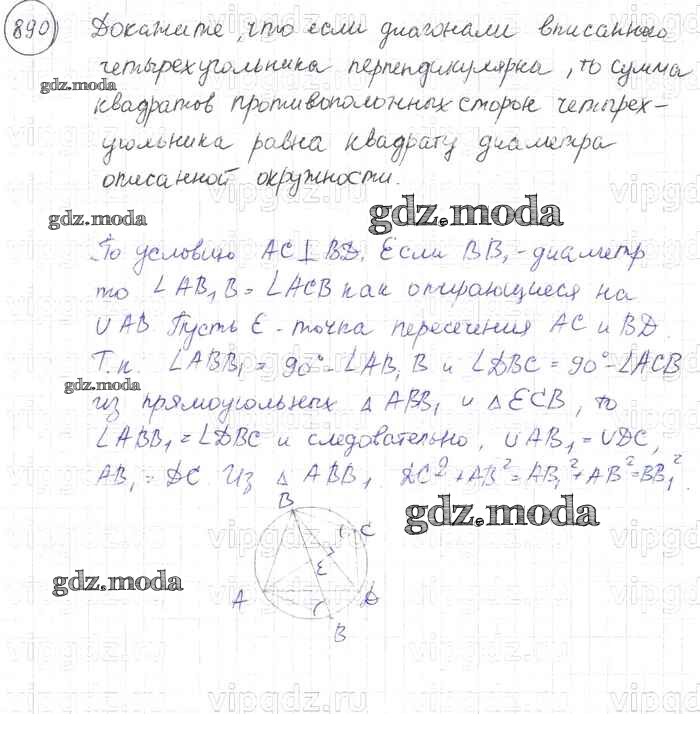 890 Докажите, что если диагонали вписанного
четырехугольника перпендикулярна, то сумма
gdz.moda
квадратов противоположных сторон четырех-
угольника равна квадрату диаметра
описанной окружности.
gdz.moda
gdz.moda
По условию AC⊥BD. Если BB₁-диаметр
то ∠AB₁B = ∠ACB как опирающиеся на
∪AB. Пусть E - точка пересечения AC и BD.
Т.к. ∠ABB₁ = 90°-∠AB₁B и ∠DBC = 90°-∠ACB
gdz.moda
из прямоугольных △ABB₁ и △ECB, то
∠ABB₁ = ∠DBC и следовательно, ∪AB₁ = ∪DC,
AB₁ = DC. Из △ABB₁ DC²+AB²=AB₁²+AB²=BB₁²
B
C
gdz.moda
E
gdz.moda
A
D
B
vipgdz.net